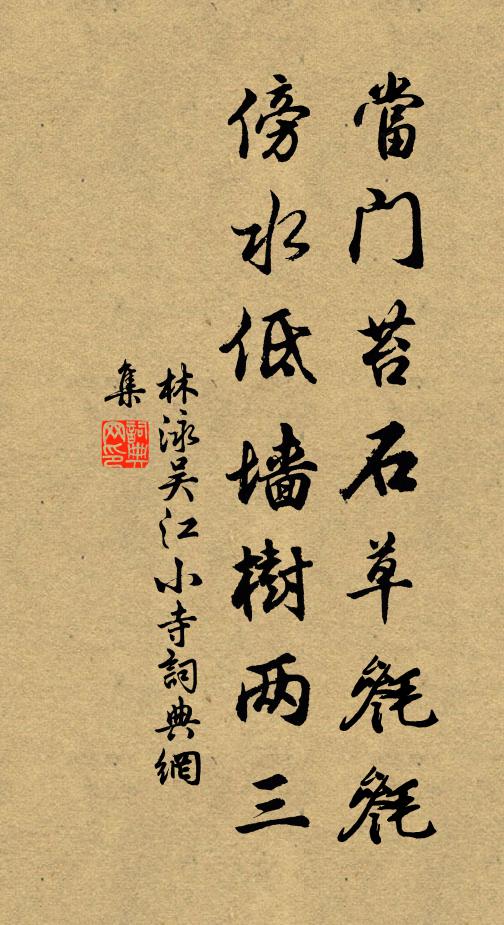 當门苔石草毵毵
傍水低墙樹两三
林泳吴江小寺詞典網
集
詞典
网印